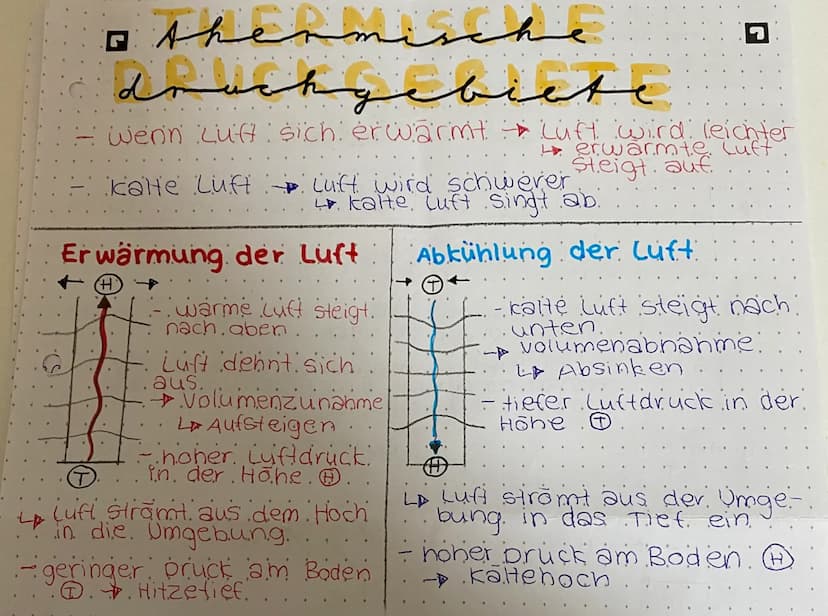 THERMISCHE
thermische
DRUCKGEBIETE
druckgebiete
- wenn Luft sich erwärmt → Luft wird leichter
↳ erwärmte Luft
steigt auf
- kalte Luft → Luft wird schwerer
↳ kalte Luft singt ab
Erwärmung der Luft
← H →
- warme Luft steigt
nach aben
Luft dehnt sich
aus
→ Volumenzunahme
↳ Aufsteigen
- hoher Luftdruck
in der Höhe H
T
↳ Luft strömt aus dem Hoch
in die Umgebung
- geringer Druck am Boden
T → Hitzetief
Abkühlung der Luft
→ T ←
- kalte Luft steigt nach
unten
→ Volumenabnahme
↳ Absinken
- tiefer Luftdruck in der
Höhe T
H
↳ Luft strömt aus der Umge-
bung in das Tief ein
- hoher Druck am Boden H
→ Kältehoch